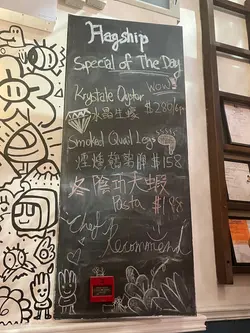 Flagship
Special of The Day
WOW!
Krystale Oyster
水晶生蠔 $280/6pc
Smoked Quail Legs
煙燻鵪鶉脾 $158
冬陰功大蝦
Pasta $198
Chef's
Recommend